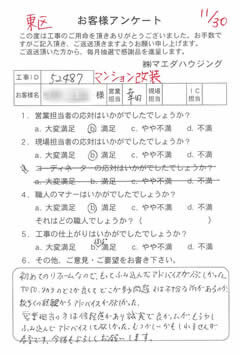 東区
11/30
お客様アンケート
この度は工事のご用命を頂きありがとうございました。お手数で
すがご記入頂き、ご返送頂きますようお願い申し上げます。
ご返送頂いた方から、毎月抽選で感謝品を進呈します。
㈱マエダハウジング
工事ID 52487 マンション改装
お客様名 様 営業担当 現場担当 IC担当
1．営業担当者の応対はいかがでしたでしょうか？
a. 大変満足 b. 満足 c. やや不満 d. 不満
2．現場担当者の応対はいかがでしたでしょうか？
a. 大変満足 b. 満足 c. やや不満 d. 不満
3．コーディネーターの応対はいかがでしたでしょうか？
a. 大変満足 b. 満足 c. やや不満 d. 不満
4．職人のマナーはいかがでしたでしょうか？
a. 大変満足 b. 満足 c. やや不満 d. 不満
それはどの職人でしょうか？（ ）
5．工事の仕上がりはいかがでしたでしょうか？
a. 大変満足 b. 満足 c. やや不満 d. 不満
6．その他、ご意見・ご要望をお書き下さい。
初めてのリフォームなので、もっとふみ込んだアドバイスがほしかった。
アドバイスがほしかった。
営業担当の方は
ふみ込んでアドバイスして欲しかった。
今後もよろしくお願いします。